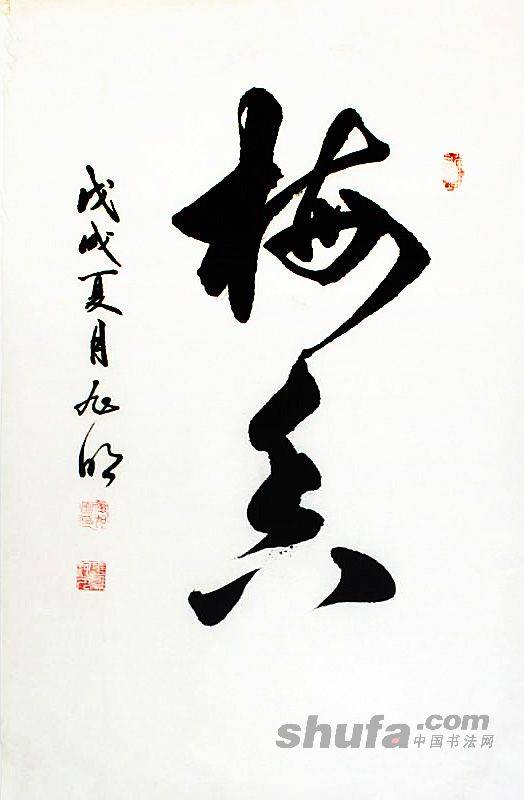 梅
戊戌夏月旭明
shufa.com
中国书法网